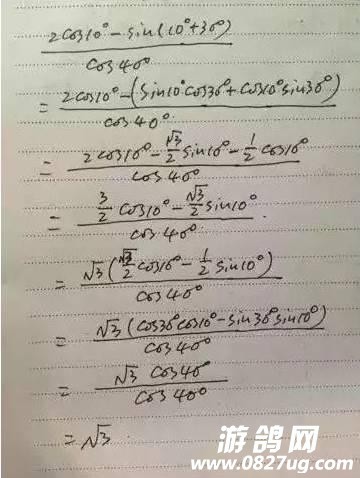 2cos10°-sin(10°+30°)
cos40°
= 2cos10°-(sin10°cos30°+cos10°sin30°)
cos40°
= 2cos10°-√3/2 sin10°-1/2 cos10°
cos40°
= 3/2 cos10°-√3/2 sin10°
cos40°
= √3(√3/2 cos10°-1/2 sin10°)
cos40°
= √3(cos30°cos10°-sin30°sin10°)
cos40°
= √3 cos40°
cos40°
=√3
游鸽网
www.0827ug.com